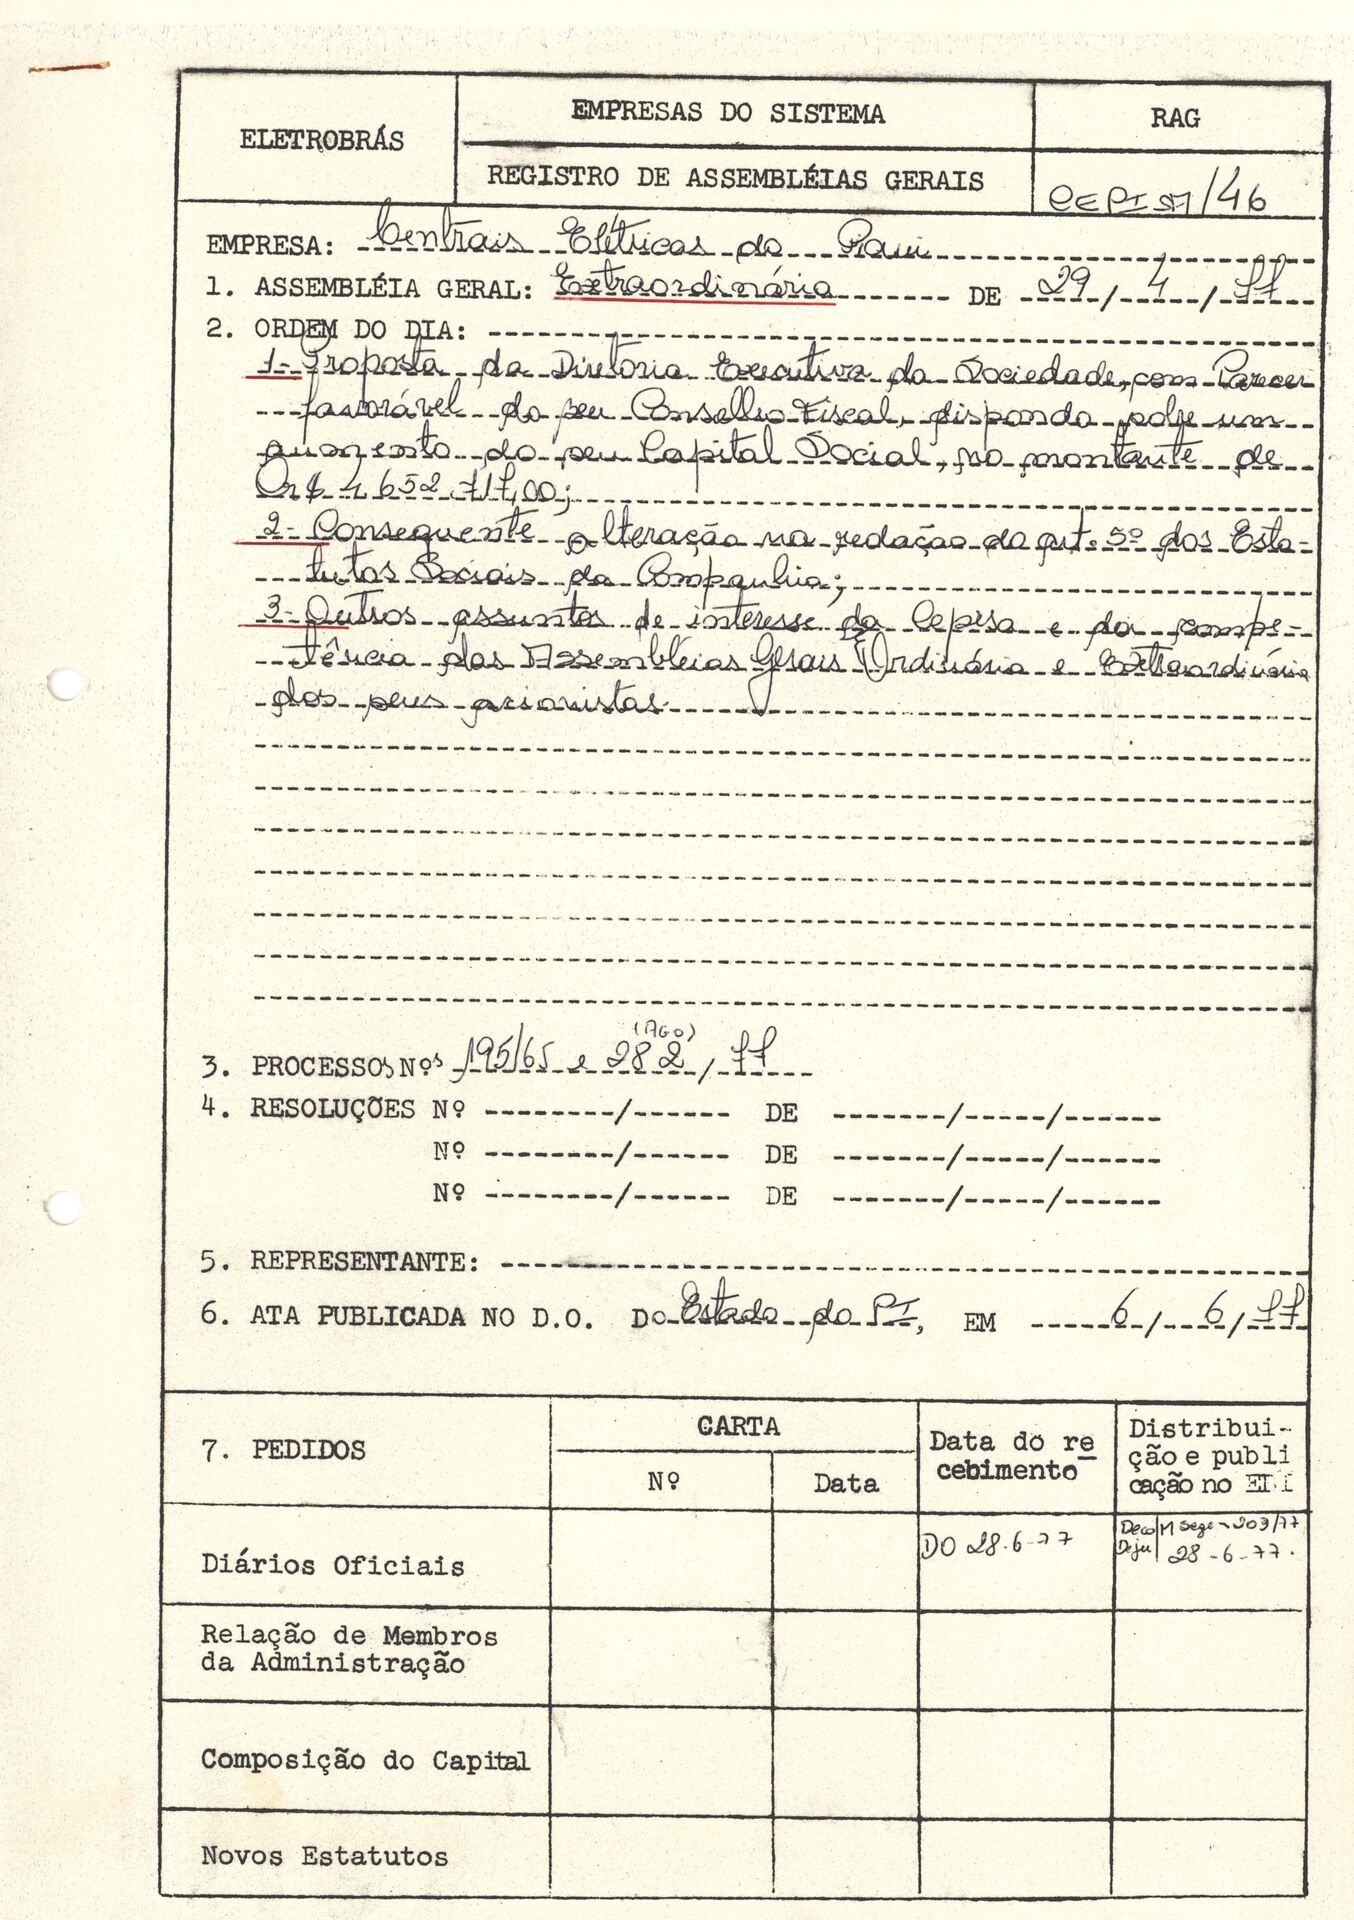 ELETROBRÁS
EMPRESAS DO SISTEMA
REGISTRO DE ASSEMBLÉIAS GERAIS
RAG
CEPISA/46
EMPRESA: Centrais Elétricas do Piaui
1. ASSEMBLÉIA GERAL: Extraordinária DE 29/4/77
2. ORDEM DO DIA:
1- Proposta da Diretoria Executiva da Sociedade, com Parecer
favorável do seu Conselho Fiscal, dispondo sobre um
aumento do seu Capital Social, no montante de
Cr$ 4 652 717,00;
2- Consequente alteração na redação do art. 5º dos Esta-
tutos Sociais da Companhia;
3- Outros assuntos de interesse da Cepisa e da compe-
tência das Assembléias Gerais Ordinária e Extraordinária
dos seus acionistas.
(AGO)
3. PROCESSOS Nºs 195/65 e 282/77
4. RESOLUÇÕES Nº / DE / /
Nº / DE / /
Nº / DE / /
5. REPRESENTANTE:
6. ATA PUBLICADA NO D.O. Do Estado do PI, EM 6/6/77
7. PEDIDOS
CARTA
Nº
Data
Data do re
cebimento
Distribui-
ção e publi
cação no
Diários Oficiais
DO 28.6-77
Deco/M Sege - 203/77
Deju/ 28-6-77.
Relação de Membros
da Administração
Composição do Capital
Novos Estatutos